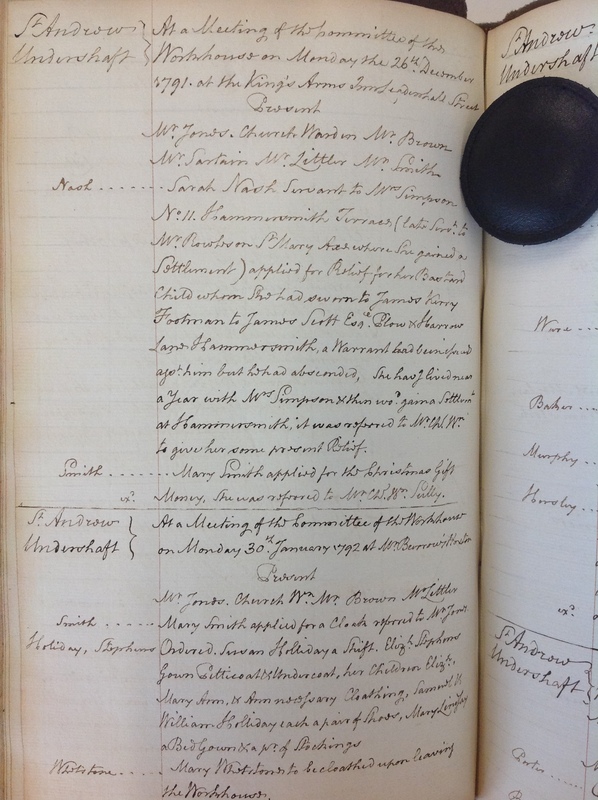 St. Andrew Undershaft } At a Meeting of the Committee of the
Workhouse on Monday the 26th December
1791. at the King's Arms Inn Leadenhall Street
Present
Mr. Jones. Church Warden Mr. Brown
Mr. Sartain Mr. Littler Mr. Smith
Nash ------- Sarah Nash Servant to Mrs Simpson
No. 11. Hammersmith Terrace (late Servt. to
Mr. Rowles on St. Mary Axe where She gained a
Settlement) applied for Relief for her Bastard
Child whom She had sworn to James Kerry
Footman to James Scott Esqe. Plow & Harrow
Lane Hammersmith, a Warrant had been issued
agst. him but he had absconded, She hasg. lived near
a Year with Mrs Simpson & then wod. gain a Settlemt
at Hammersmith, it was referred to Mr. Ch. Wn.
to give her some present Relief.
Smith ------- Mary Smith applied for the Christmas Gift
exd. Money, She was referred to Mr. Ch. Wn. Sully.
St. Andrew Undershaft } At a Meeting of the Committee of the Workhouse
on Monday 30th. January 1792 at Mr. Burrows's
Present
Mr. Jones. Church Wn. Mr. Brown Mr. Littler
Smith ------ Mary Smith applied for a Cloak referred to Mr. Jones
Holiday, Stephens Ordered. Susan Holliday a Shift. Elizth. Stephens
Gown Petticoat & Undercoat, her Children Elizth.
Mary Ann, & Ann necessary Cloathing, Samuel &
William Holliday each a pair of Shoes, Mary Lingley
a Bed Gown & a pr. of Stockings
Whetstone ----- Mary Whetstone to be cloathed upon leaving
the Workhouse.
St. Andrew
Undershaft
Ware ---
Baker ---
Murphy --
Horsley --
exd.
St. Andrew
Undershaft
Porter ----